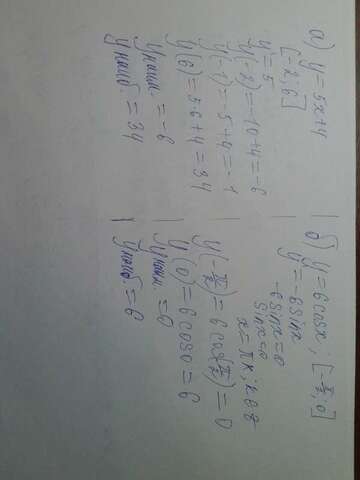 а) y = 5x+4
[-2; 6]
y' = 5
y(-2) = -10+4 = -6
y(-1) = -5+4 = -1
y(6) = 5·6+4 = 34
yнаим. = -6
yнаиб. = 34
б) y = 6cosx; [-π/2; 0]
y' = -6sinx
-6sinx=0
sinx=0
x=πk; k∈z
y(-π/2) = 6cos(π/2) = 0
y(0) = 6cos0 = 6
yнаим. = 0
yнаиб. = 6